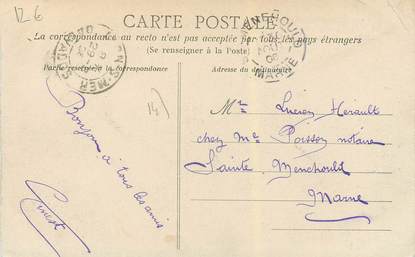 126
CARTE POSTALE
La correspondance au recto n'est pas acceptée par tous les pays étrangers
(Se renseigner à la Poste)
Partie réservée à la correspondance
Adresse du destinataire
14
Bonjour à tous les amis
Ernest
Mr Lucien Hérault
chez Me Poisson notaire
Sainte Menehould
Marne
MARNE